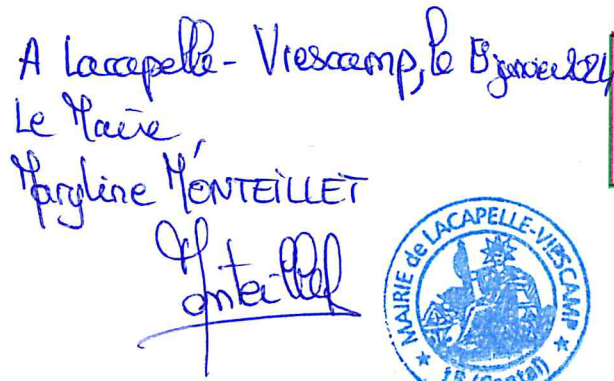 A Lacapelle-Viescamp, le janvier 2024
Le Maire,
Maryline MONTEILLET
Monteillet
MAIRIE de LACAPELLE-VIESCAMP
15 (Cantal)